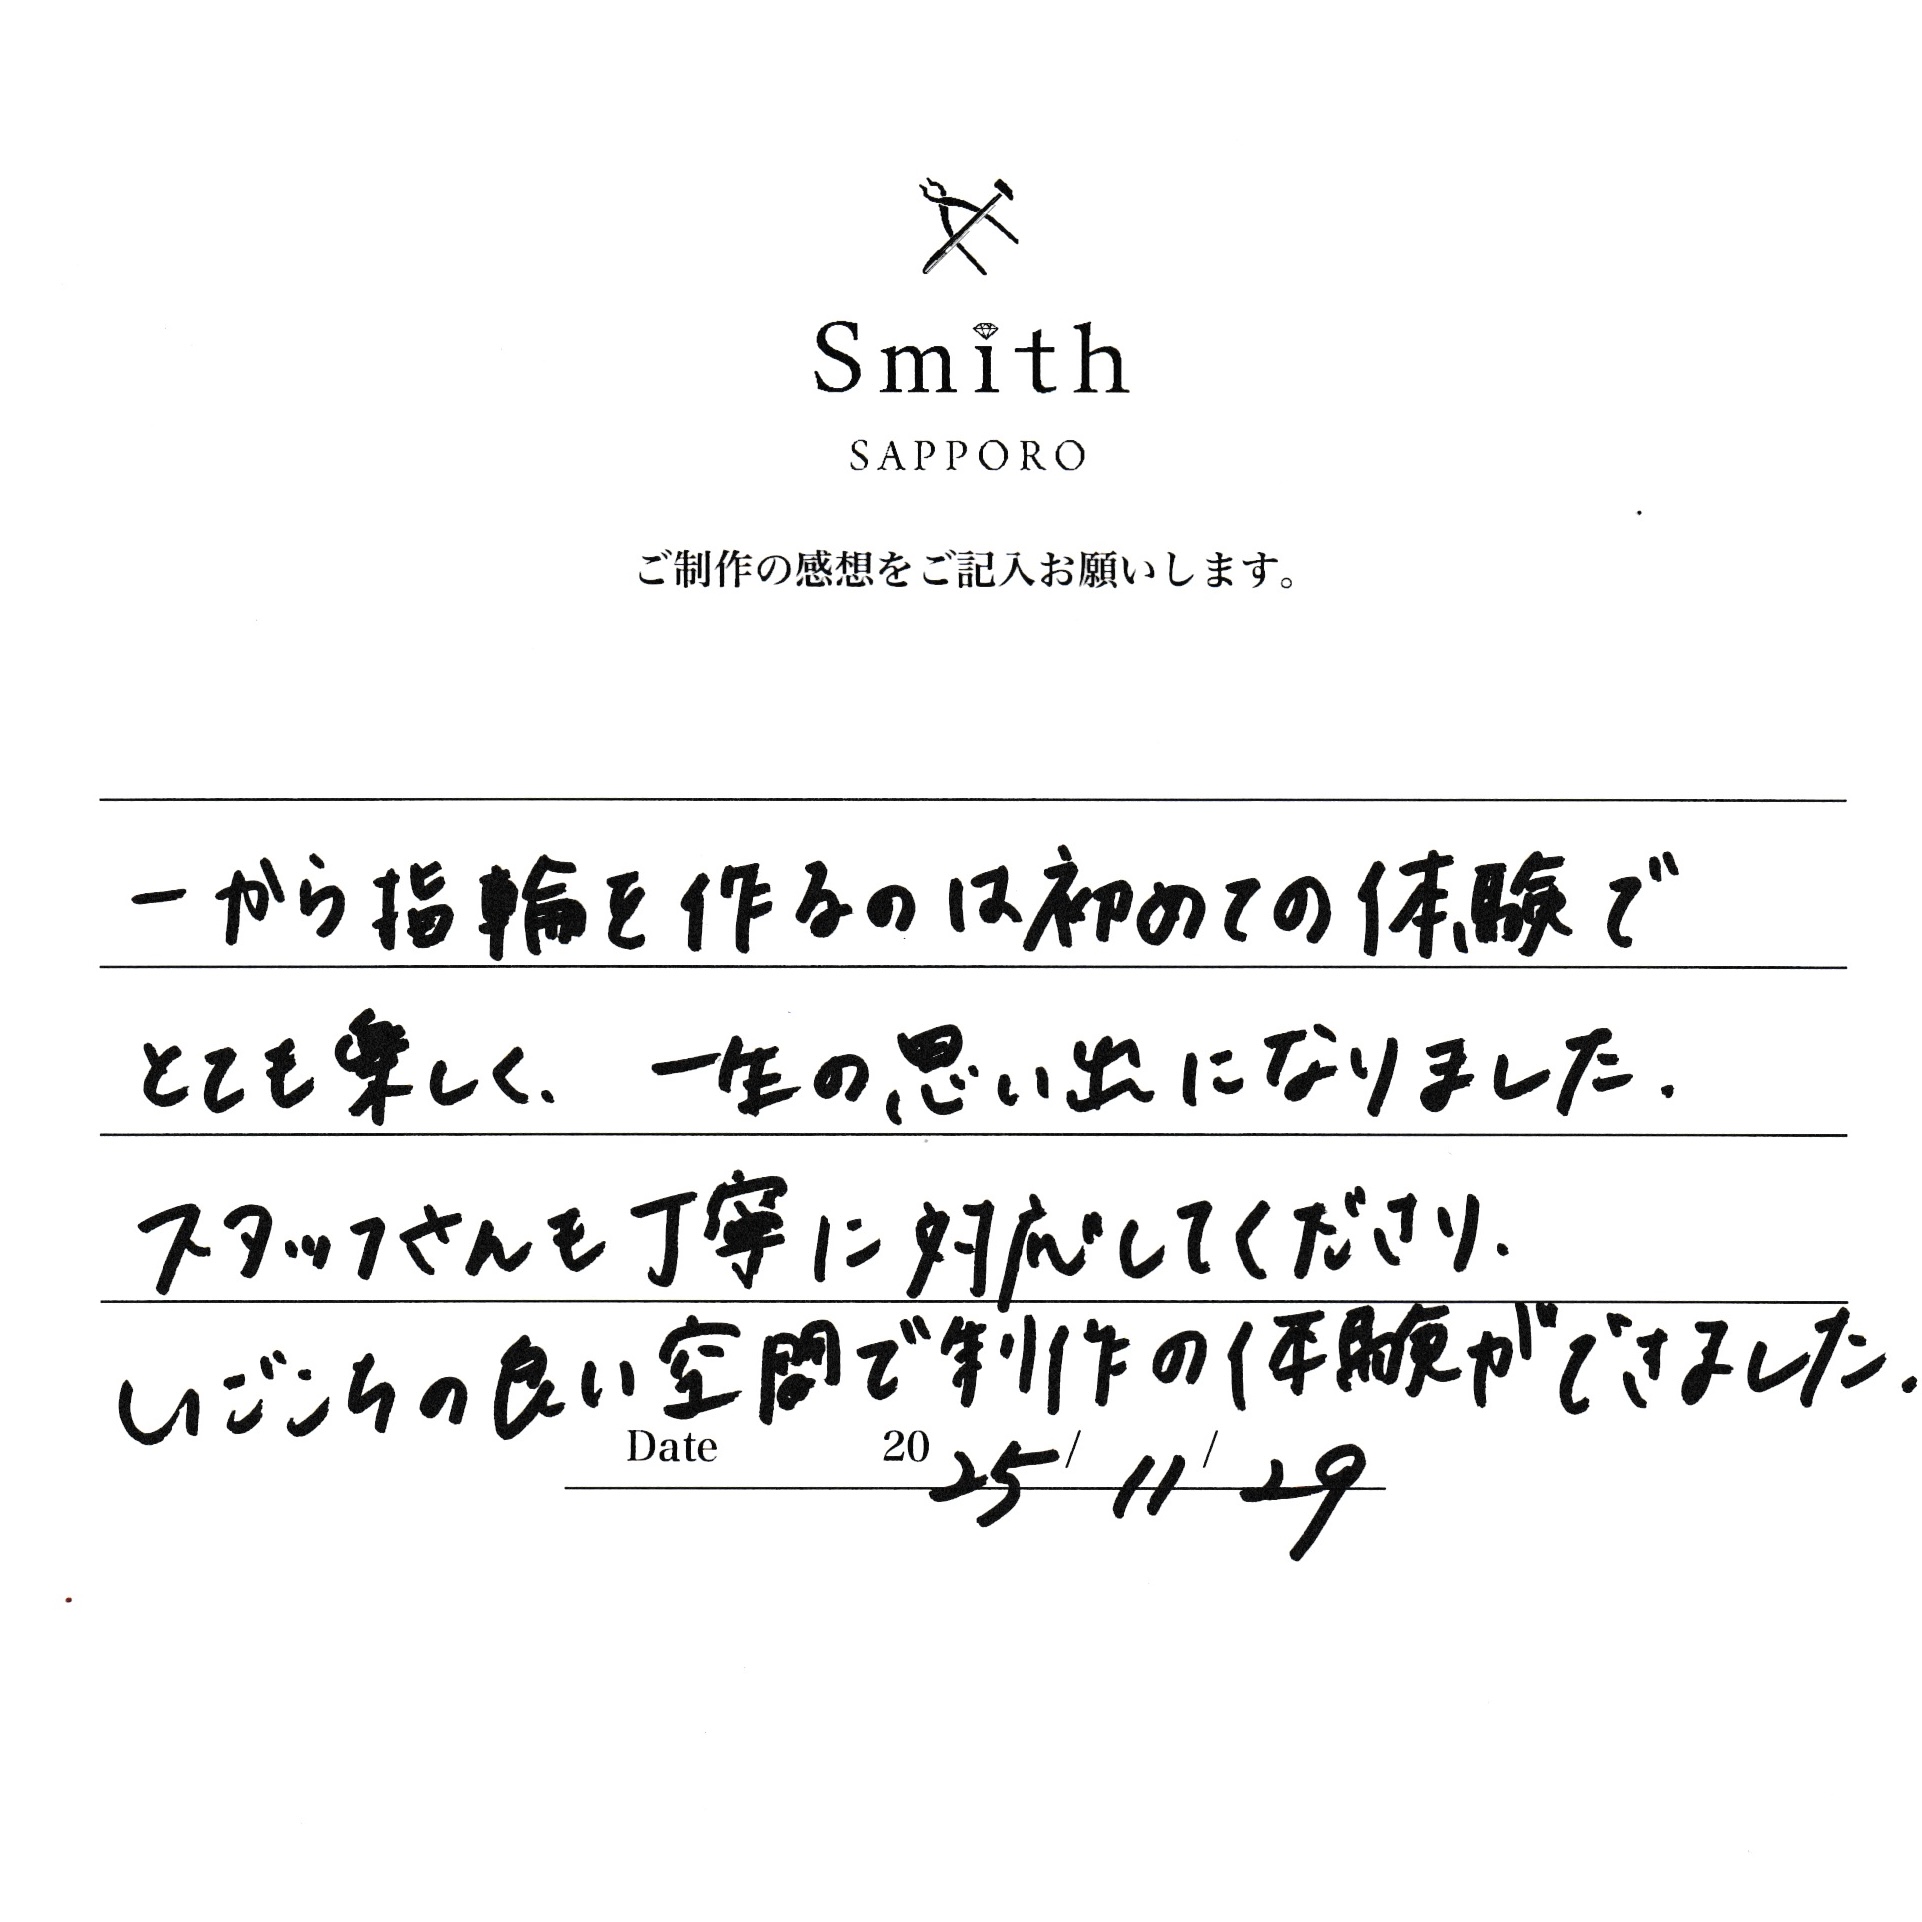 Smith
SAPPORO
ご制作の感想をご記入お願いします。
一から指輪を作るのは初めての体験で
とても楽しく、一生の思い出になりました.
スタッフさんも丁寧に対応してくださり.
いごこちの良い空間で制作の体験ができました.
Date 2025/11/29